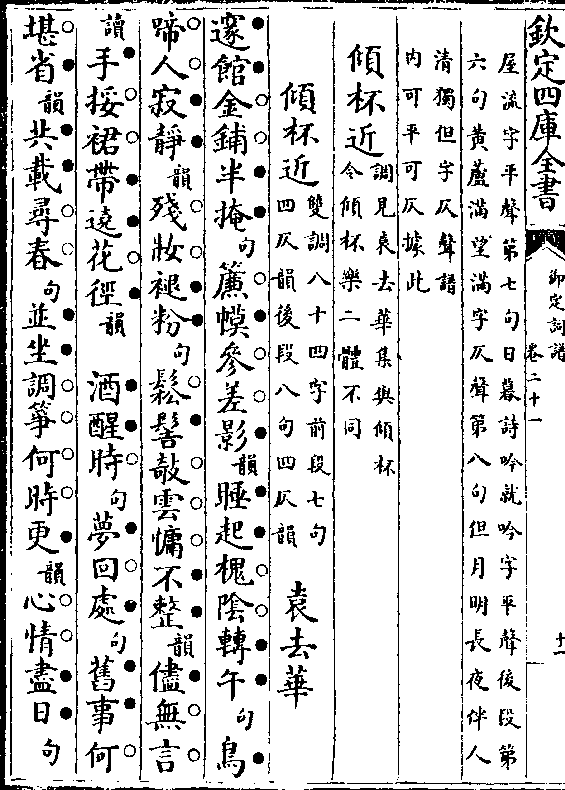 欽定四庫全書
御定詞譜
卷二十一
十一
屋流字平聲第七句日暮詩吟就吟字平聲後段第
六句黄蘆滿望滿字仄聲第八句但月明長夜伴人
清獨但字仄聲譜
内可平可仄據此
傾杯近
調見袁去華集與傾杯
令傾杯樂二體不同
傾杯近
雙調八十四字前段七句
四仄韻後段八句四仄韻
袁去華
邃館金鋪半掩句簾幙參差影韻睡起槐陰轉午句鳥
蹄人寂靜韻殘妝褪粉句鬆髻敧雲慵不整韻儘無言
讀手挼裙帶遶花徑韻 酒醒時句夢回處句舊事何
堪省韻共載尋春句並坐調箏何時更韻心情盡日句